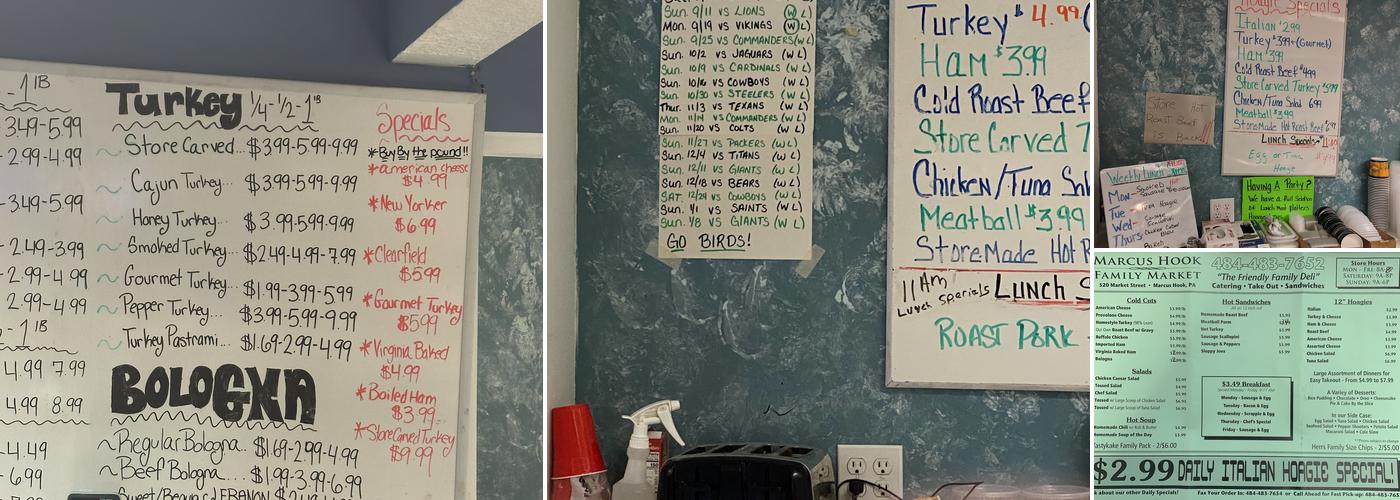 - 1 lB
3.49 - 5.99
- 2.99 - 4.99
- 3.49 - 5.99
2.49 - 3.99
- 2.99 - 4.99
2.99 - 4.99
- 1 lB
4.99 7.99
4.99 8.99
- 4.49
- 6.99
Turkey 1/4 - 1/2 - 1 lB
Store Carved... $3.99-5.99-9.99
Cajun Turkey... $3.99-5.99-9.99
Honey Turkey... $3.99-5.99-9.99
Smoked Turkey... $2.49-4.99-7.99
Gourmet Turkey... $1.99-3.99-5.99
Pepper Turkey... $3.99-5.99-9.99
Turkey Pastrami... $1.69-2.99-4.99
BOLOGNA
Regular Bologna.. $1.69-2.99-4.99
Beef Bologna... $1.99-3.99-6.99
Specials
*Buy By the pound!!
*american cheese
$4.99
*New Yorker
$6.99
*Clearfield
$5.99
*Gourmet Turkey
$5.99
*Virginia Baked
$4.99
*Boiled Ham
$3.99
*Store Carved Turkey
$9.99
Sun. 9/11 vs LIONS (W L)
Mon. 9/19 vs VIKINGS (W L)
Sun. 9/25 vs COMMANDERS (W L)
Sun. 10/2 vs JAGUARS (W L)
Sun. 10/9 vs CARDINALS (W L)
Sun. 10/16 vs COWBOYS (W L)
Sun. 10/30 vs STEELERS (W L)
Thur. 11/3 vs TEXANS (W L)
Mon. 11/14 vs COMMANDERS (W L)
Sun. 11/20 vs COLTS (W L)
Sun. 11/27 vs PACKERS (W L)
Sun. 12/4 vs TITANS (W L)
Sun. 12/11 vs GIANTS (W L)
Sun. 12/18 vs BEARS (W L)
SAT. 12/24 vs COWBOYS (W L)
Sun. 1/1 vs SAINTS (W L)
Sun. 1/8 vs GIANTS (W L)
GO BIRDS!
Turkey $4.99 (
Ham $3.99
Cold Roast Beef
Store Carved T
Chicken/Tuna Sal
Meatball $3.99
Store Made Hot R
11 Am
Lunch specials
Lunch S
ROAST PORK
Hoagie Specials
Italian $2.99
Turkey $3.99 (Gourmet)
Ham $3.99
Cold Roast Beef $4.99
Store Carved Turkey $5.99
Chicken/Tuna Salad 6.99
Meatball $3.99
Store Made Hot Roast Beef $6.99
Lunch Specials
Egg or Tuna
Hoagie
Store Hot
Roast Beef
is Back!!
Weekly Lunch
Mon-
Tue-
Wed-
Thurs
Having A Party?
We have a Full Selection
of Lunch Meat Platters
Hoagie
MARCUS HOOK
FAMILY MARKET
520 Market Street • Marcus Hook, PA
484-483-7652
"The Friendly Family Deli"
Catering • Take Out • Sandwiches
Store Hours
Mon - Fri: 8A-
Saturday: 9A-8P
Sunday: 9A-6P
Cold Cuts
American Cheese
Provolone Cheese
Homestyle Turkey (98% Lean)
Our Own Roast Beef w/ Gravy
Buffalo Chicken
Imported Ham
Virginia Baked Ham
Bologna
Salads
Chicken Caesar Salad
Tossed Salad
Chef Salad
Tossed w/ Large Scoop of Chicken Salad
Tossed w/ Large Scoop of Tuna Salad
Hot Soup
Homemade Chili w/ Roll & Butter
Homemade Soup of the Day
Tastykake Family Pack - 2/$6.00
Hot Sandwiches
Homemade Roast Beef
Meatball Parm
Hot Turkey
Sausage Scallopini
Sausage & Peppers
Sloppy Joes
$3.49 Breakfast
Monday - Sausage & Egg
Tuesday - Bacon & Egg
Wednesday - Scrapple & Egg
Thursday - Chef's Special
Friday - Sausage & Egg
12" Hoagies
Italian $2.99
Turkey & Cheese
Ham & Cheese
Roast Beef
American Cheese
Assorted Cheese
Chicken Salad
Tuna Salad
Large Assortment of Dinners for
Easy Takeout - From $4.99 to $7.99
A Variety of Desserts:
Rice Pudding • Chocolate • Oreo • Cheesecake
Pie & Cake By the Slice
In our Side Case:
Egg Salad • Tuna Salad • Chicken Salad
Seafood Salad • Pepper Shooters • Potato Salad
Macaroni Salad • Cole Slaw
Herrs Family Size Chips - 2/$5.00
$2.99 DAILY ITALIAN HOAGIE SPECIAL!
k about our other Daily Specials! Fax Your Order to: 484-483-7654 or Call Ahead for Fast Pick-up: 484-483-7652